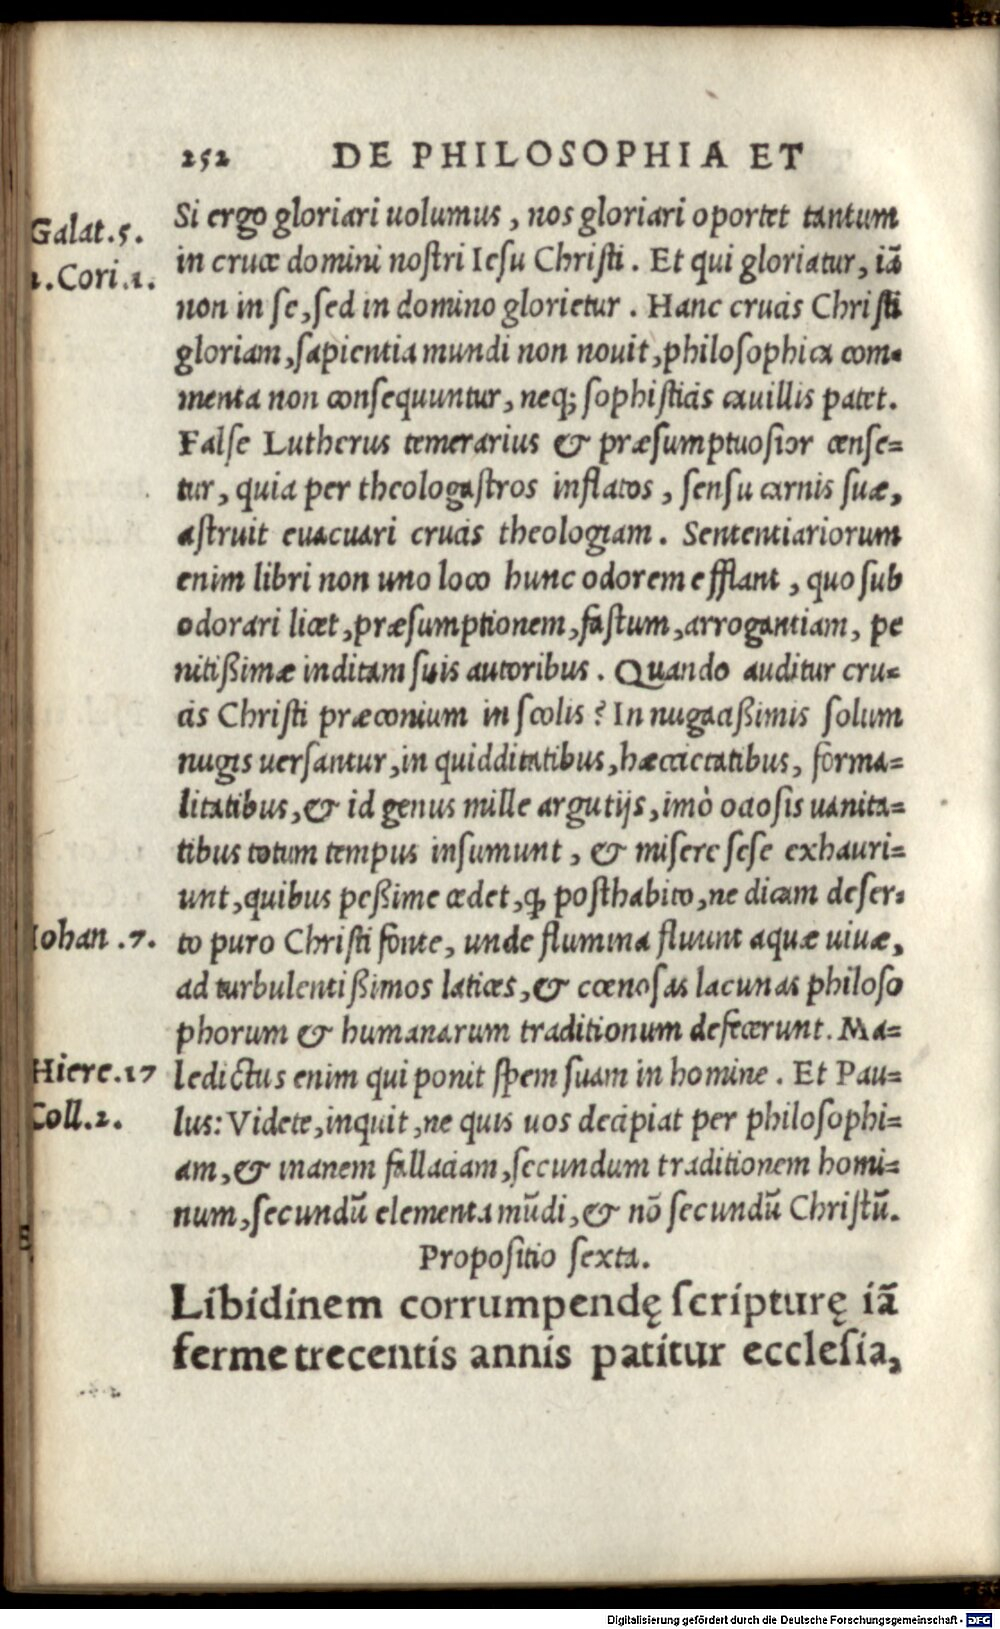 252 DE PHILOSOPHIA ET
Galat.5.
1.Cori.1.
Si ergo gloriari uolumus, nos gloriari oportet tantum
in cruce domini nostri Iesu Christi. Et qui gloriatur, iā
non in se, sed in domino glorietur. Hanc crucis Christi
gloriam, sapientia mundi non nouit, philosophica com-
menta non consequuntur, neq; sophisticis cauillis patet.
False Lutherus temerarius & præsumptuosior cense=
tur, quia per theologastros inflatos, sensu carnis suæ,
astruit euacuari crucis theologiam. Sententiariorum
enim libri non uno loco hunc odorem efflant, quo sub
odorari licet, præsumptionem, fastum, arrogantiam, pe
nitißimæ inditam suis autoribus. Quando auditur cru=
cis Christi præconium in scolis? In nugacißimis solum
nugis uersantur, in quidditatibus, hæcceitatibus, forma=
litatibus, & id genus mille argutijs, imò ociosis uanita=
tibus totum tempus insumunt, & misere sese exhauri=
unt, quibus peßime cedet, ꝙ posthabito, ne dicam deser-
Iohan.7.
to puro Christi fonte, unde flumina fluunt aquæ uiuæ,
ad turbulentißimos latices, & cœnosas lacunas philoso
phorum & humanarum traditionum defecerunt. Ma=
Hiere.17
ledictus enim qui ponit spem suam in homine. Et Pau=
Coll.2.
lus: Videte, inquit, ne quis uos decipiat per philosophi=
am, & inanem fallaciam, secundum traditionem homi=
num, secundū elementa mūdi, & nō secundū Christū.
Propositio sexta.
Libidinem corrumpendę scripturę iā
ferme trecentis annis patitur ecclesia,
Digitalisierung gefördert durch die Deutsche Forschungsgemeinschaft - DFG